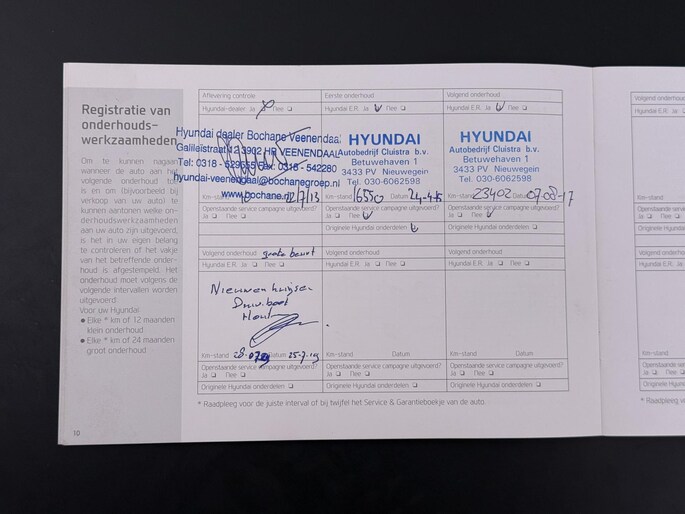 Registratie van
onderhouds-
werkzaamheden
Om te kunnen nagaan
wanneer de auto aan het
volgende onderhoud toe
is en om (bijvoorbeeld bij
verkoop van uw auto) te
kunnen aantonen welke on-
derhoudswerkzaamheden
aan uw auto zijn uitgevoerd,
is het in uw eigen belang
te controleren of het vakje
van het betreffende onder-
houd is afgestempeld. Het
onderhoud moet volgens de
volgende intervallen worden
uitgevoerd.
Voor uw Hyundai:
● Elke * km of 12 maanden
klein onderhoud
● Elke * km of 24 maanden
groot onderhoud
10
Aflevering controle
Hyundai-dealer Ja ❑ Nee ❑
Hyundai dealer Bochane Veenendaal
Galileïstraat 12 3902 HR VEENENDAAL
Tel: 0318 - 529555 Fax: 0318 - 542280
hyundai-veenendaal@bochanegroep.nl
www.bochane.nl
Km-stand 22/7/13
Openstaande service campagne uitgevoerd?
Ja ❑ Nee ❑
Eerste onderhoud
Hyundai E.R. Ja ❑ Nee ❑
HYUNDAI
Autobedrijf Cluistra b.v.
Betuwehaven 1
3433 PV Nieuwegein
Tel. 030-6062598
Km-stand 16550 24-4-15
Openstaande service campagne uitgevoerd?
Ja ❑ Nee ❑
Originele Hyundai onderdelen ❑
Volgend onderhoud
Hyundai E.R. Ja ❑ Nee ❑
HYUNDAI
Autobedrijf Cluistra b.v.
Betuwehaven 1
3433 PV Nieuwegein
Tel. 030-6062598
Km-stand 23402 Datum 07-08-17
Openstaande service campagne uitgevoerd?
Ja ❑ Nee ❑
Originele Hyundai onderdelen ❑
Volgend onderhoud grote beurt
Hyundai E.R. Ja ❑ Nee ❑
Km-stand Datum
Openstaande service campagne uitgevoerd?
Ja ❑ Nee ❑
Originele Hyundai onderdelen ❑
Volgend onderhoud
Hyundai E.R. Ja ❑ Nee ❑
Km-stand Datum
Openstaande service campagne uitgevoerd?
Ja ❑ Nee ❑
Originele Hyundai onderdelen ❑
Volgend onderhoud
Hyundai E.R. Ja ❑ Nee ❑
Km-stand Datum
Openstaande service campagne uitgevoerd?
Ja ❑ Nee ❑
Originele Hyundai onderdelen ❑
* Raadpleeg voor de juiste interval of bij twijfel het Service & Garantieboekje van de auto.
Volgend onderhoud
Hyundai E.R. Ja
Km-stand
Openstaande service
Ja ❑ Nee ❑
Originele Hyundai
* Raadpleeg